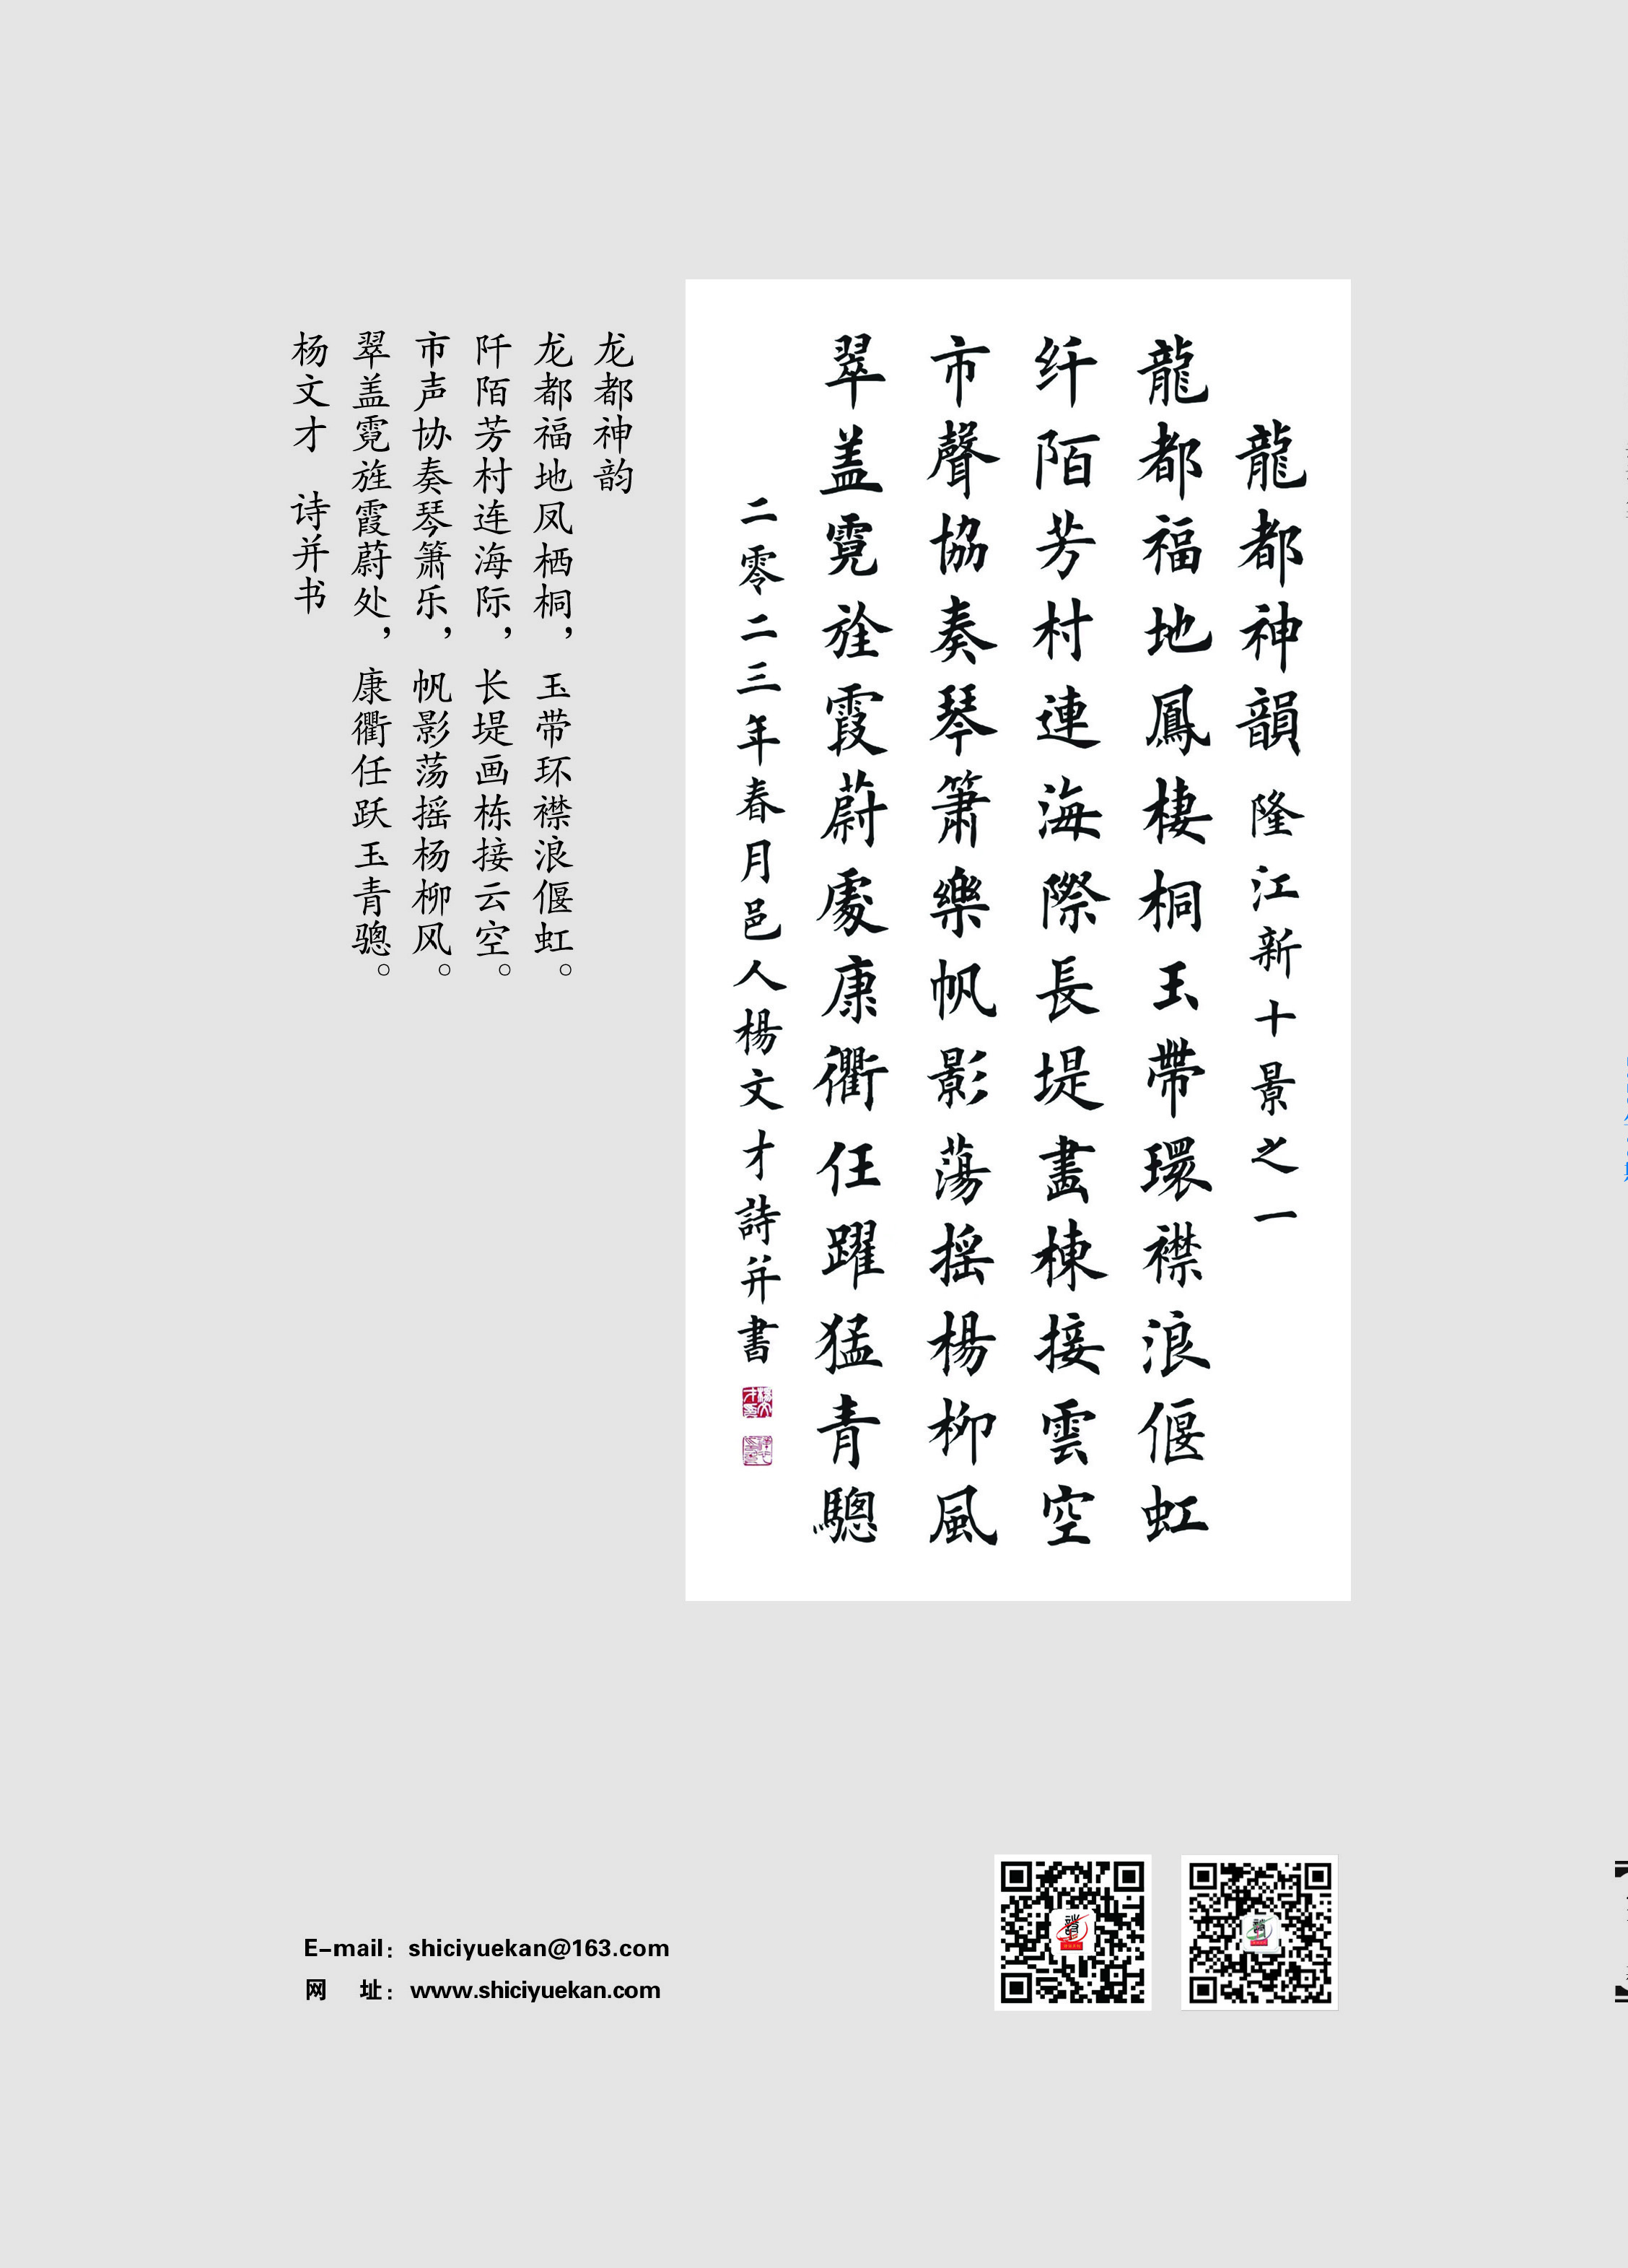 龍都神韻 隆江新十景之一
龍都福地鳳棲桐玉帶環襟浪偃虹
纤陌芳村連海際長堤畫棟接雲空
市聲協奏琴簫樂帆影蕩摇楊柳風
翠盖霓旌霞蔚處康衢任躍猛青驄
二零二三年春月邑人楊文才詩并書
龙都神韵
龙都福地凤栖桐，玉带环襟浪偃虹。
阡陌芳村连海际，长堤画栋接云空。
市声协奏琴箫乐，帆影荡摇杨柳风。
翠盖霓旌霞蔚处，康衢任跃玉青骢。
杨文才 诗并书
E-mail：shiciyuekan@163.com
网 址：www.shiciyuekan.com